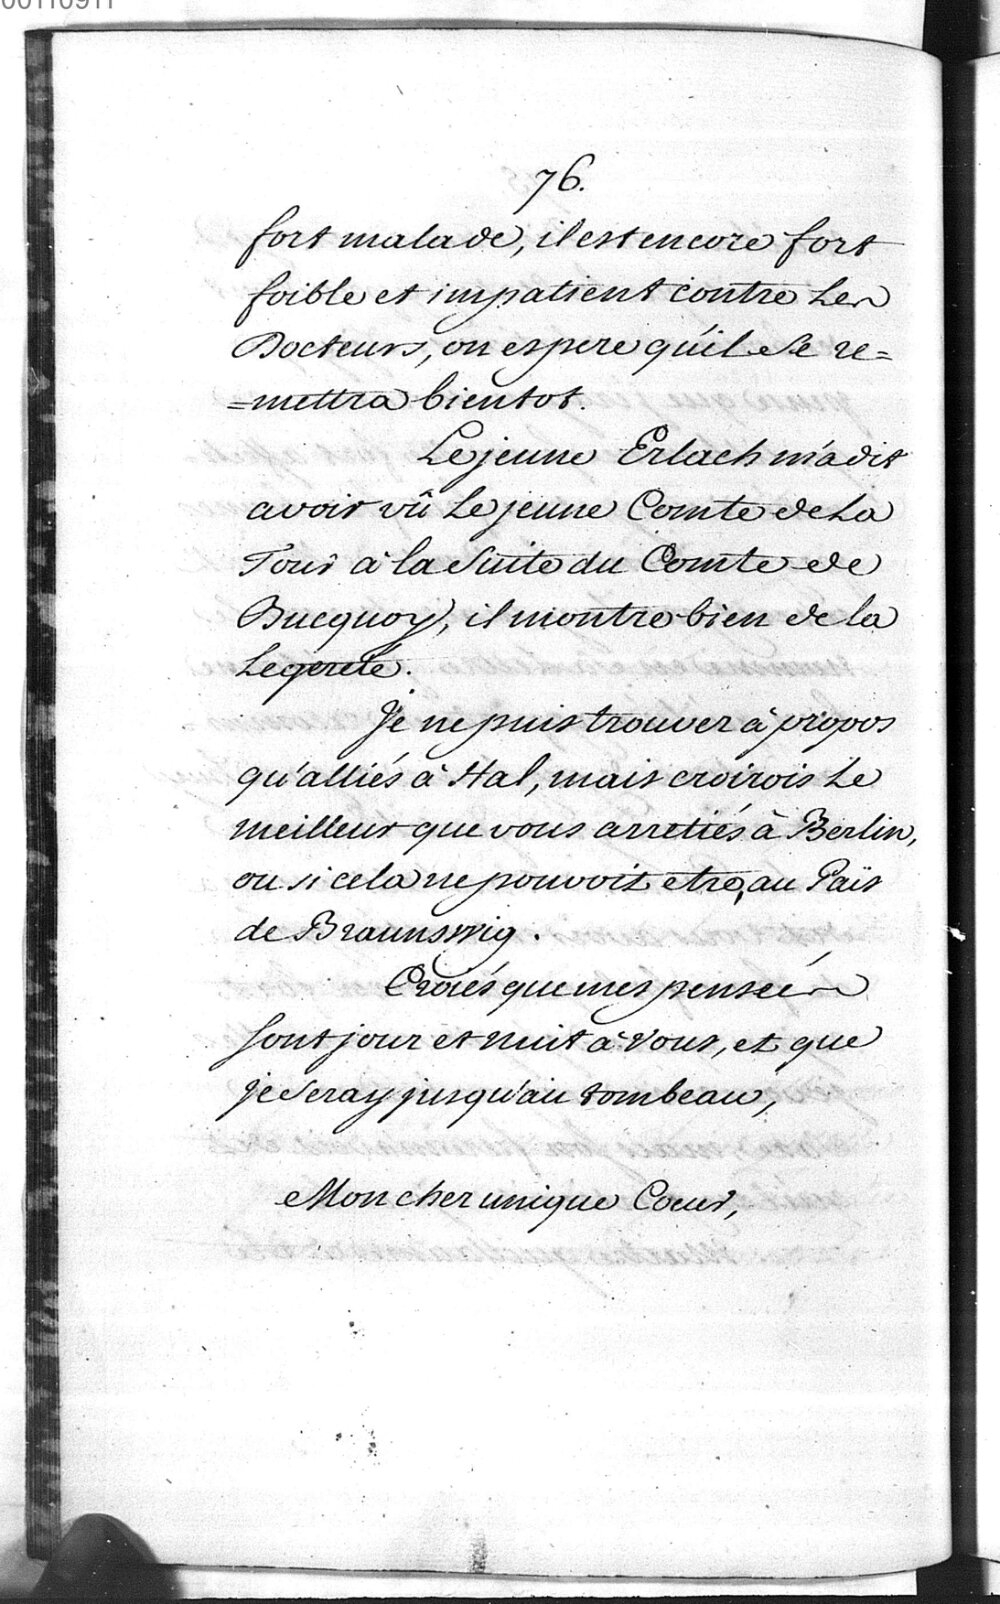 00110911
76.
fort malade, il est encore fort
foible et impatient contre Les
Docteurs, on espere qu'il Se re=
=mettra bientot.
Le jeune Erlach m'a dit
avoir vû Le jeune Comte de La
Tour à la Suite du Comte de
Bucquoy, il montre bien de la
Legereté.
Je ne puis trouver à propos
qu'alliés à Hal, mais croirois Le
meilleur que vous arretiés à Berlin,
ou si cela ne pouvoit etre, au Païs
de Braunswig.
Croiés que mes pensées
Sont jour et nuit à Vous, et que
je Seray jusqu'au tombeau,
Mon cher unique Coeur,